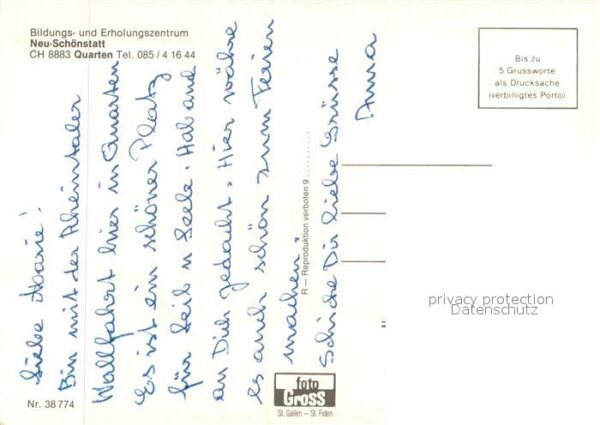 Bildungs- und Erholungszentrum
Neu-Schönstatt
CH 8883 Quarten Tel. 085 / 4 16 44
Bis zu
5 Grussworte
als Drucksache
(verbilligtes Porto)
Liebe Marie!
Bin mit der Rheintaler
Wallfahrt hier in Quarten
Es ist ein schöner Platz
für Leib u Seele. Hab and
an Dich gedacht. Hier währe
es auch schön zum Ferien
machen.
Schicke Dir liebe Grüsse
Anna
R — Reproduktion verboten 9
privacy protection
Datenschutz
foto
Gross
St. Gallen — St. Fiden
Nr. 38 774